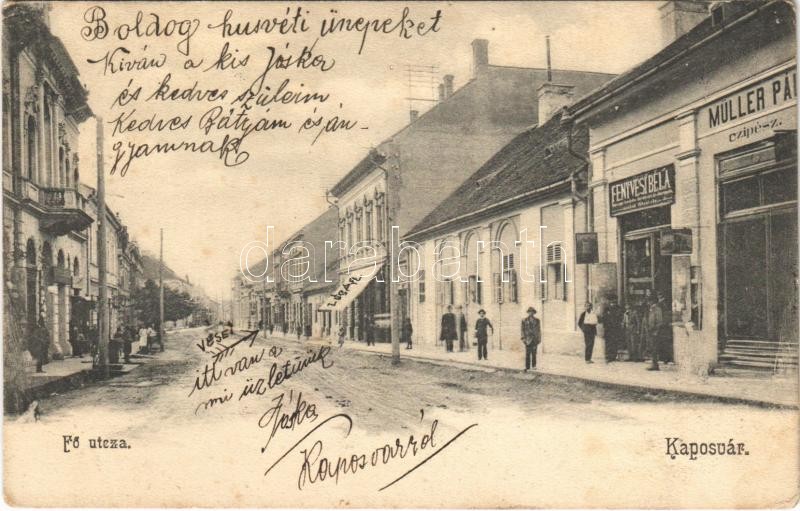 Boldog husvéti ünepeket
Kiván a kis Jóska
és kedves szüleim
Kedves Bátyám és án-
gyamnak
MÜLLER PÁL
czipész.
FENYVESI BÉLA
darabanth
itt van a
mi üzletünk
Jóska
Kaposvarról
Fő utcza.
Kaposvár.